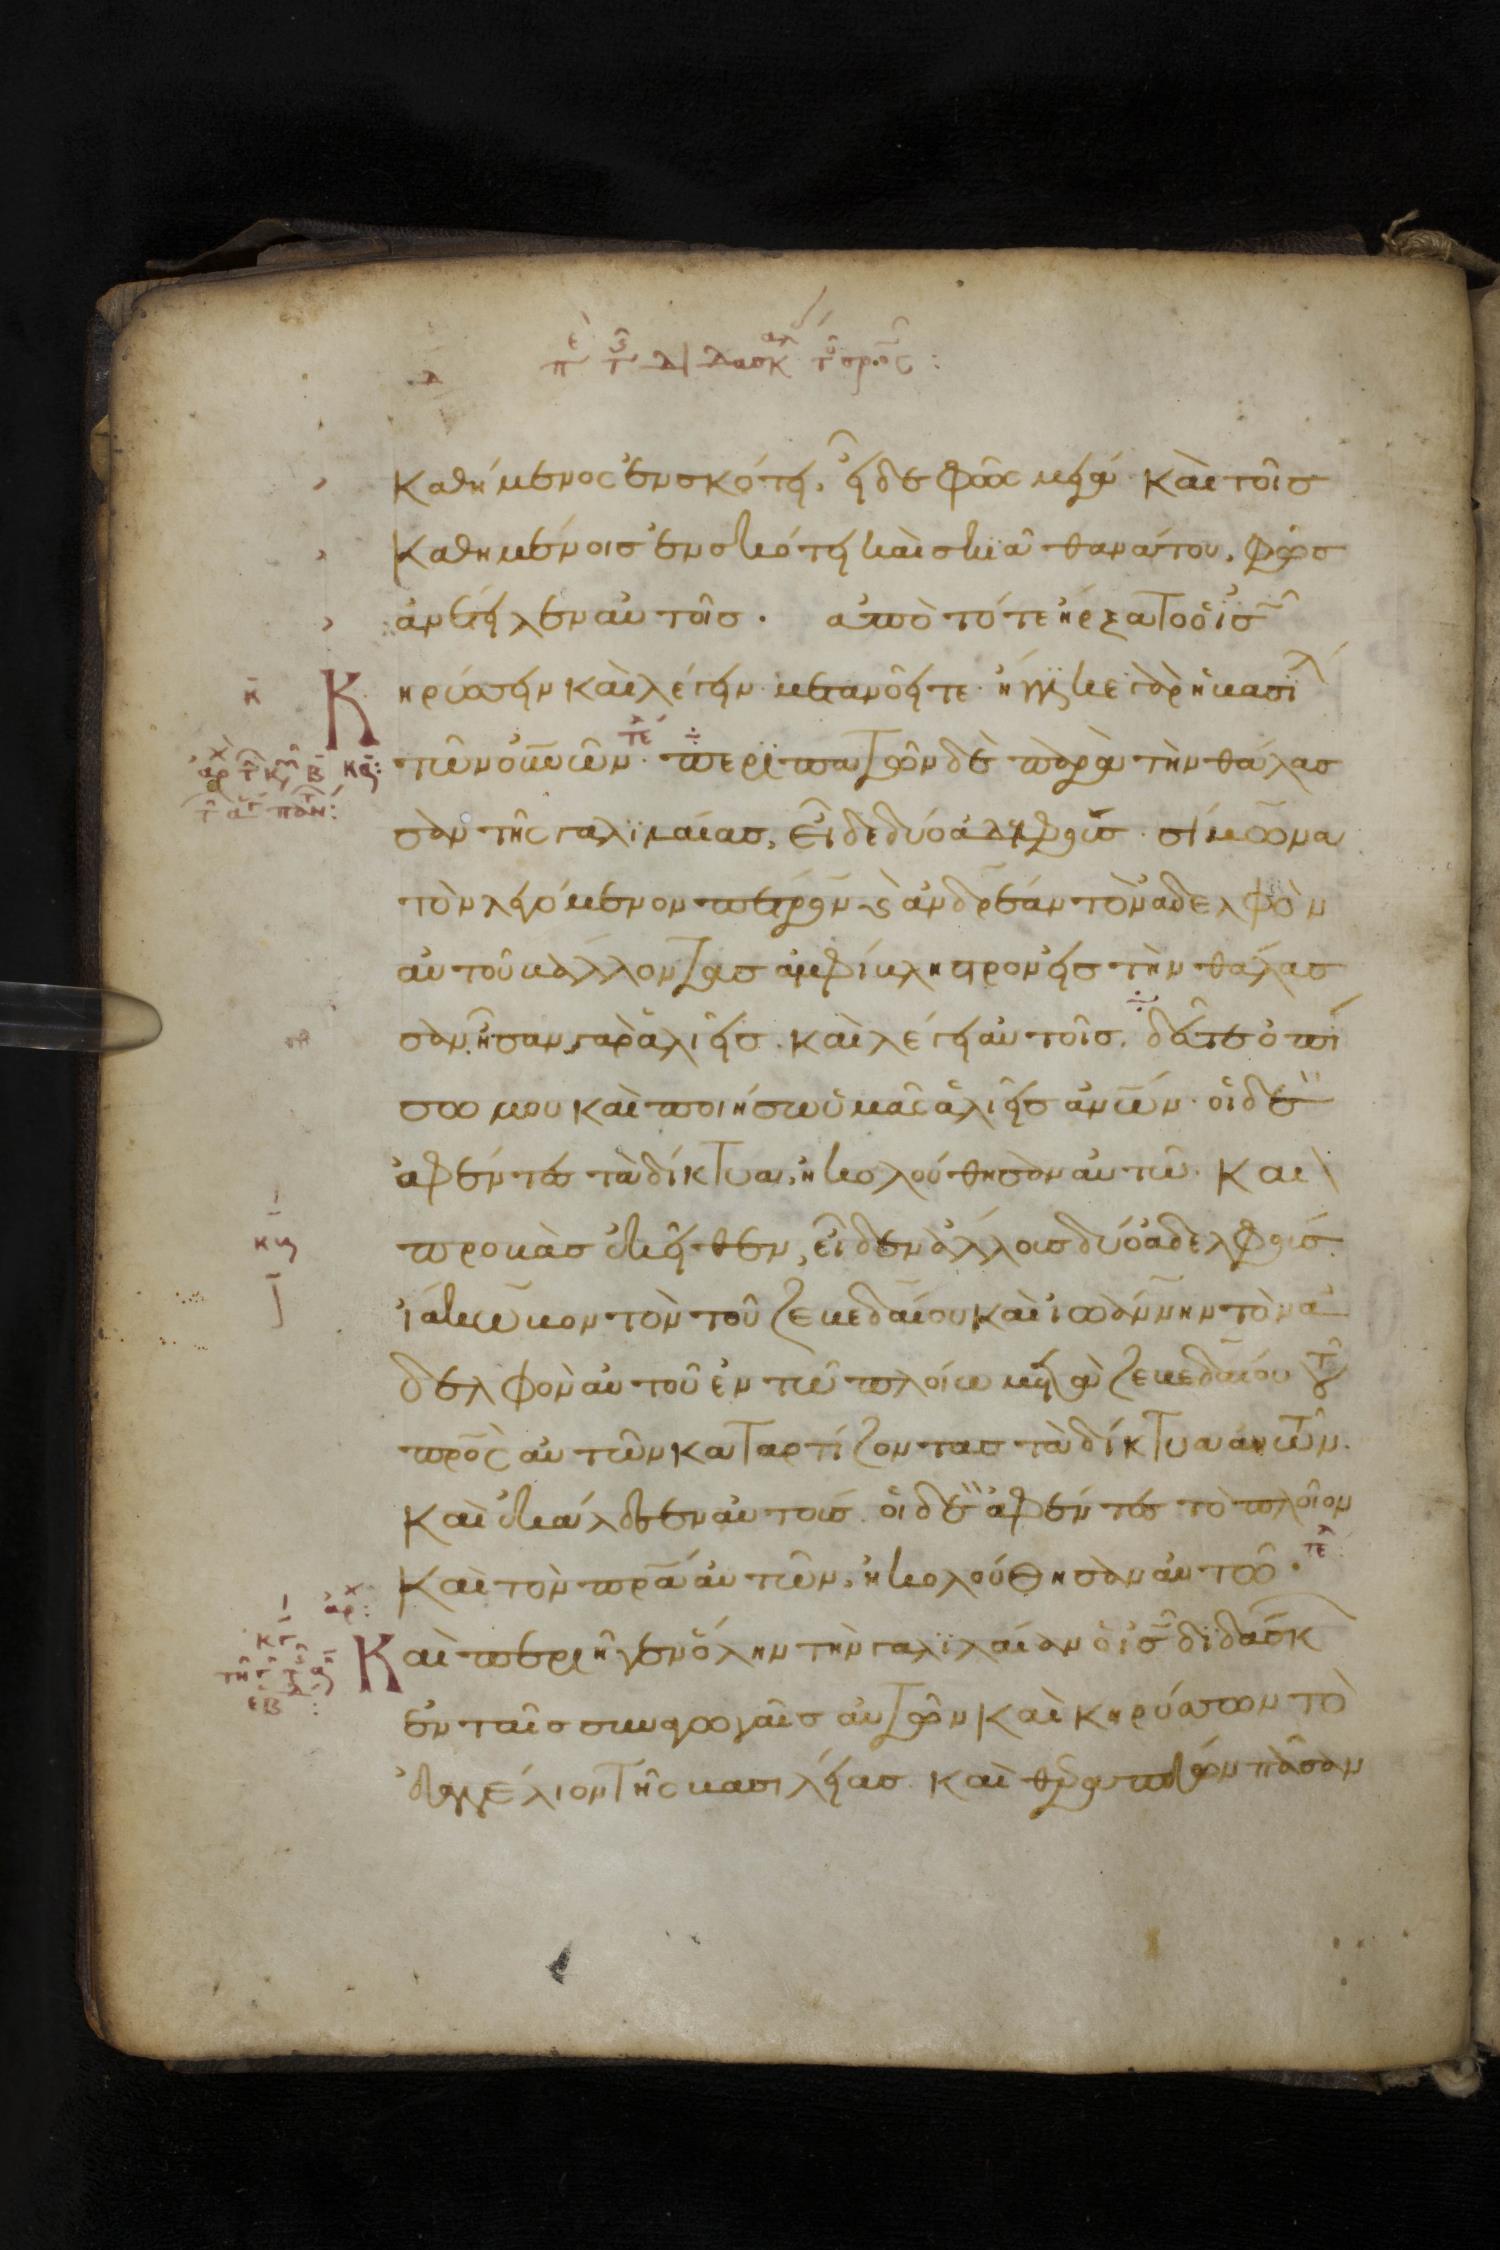 καθήμενος ἐν σκότει, εἶδε φῶς μέγα· καὶ τοῖσ
καθημένοισ ἐν σκότει καὶ σκιᾶ θανάτου, φῶσ
ἀνέτειλεν αὐτοῖσ. ἀπὸ τότε ἤρξατο ὁ ἰσ̅
κηρύσσειν καὶ λέγειν· μετανοεῖτε· ἤγγικε γὰρ ἡ βασιλ
τῶν οὐν̅ῶν· περιπατῶν δὲ παρὰ τὴν θάλασ
σαν τῆς γαλιλαίασ, εἶδε δύο ἀδελφούσ· σίμωνα
τὸν λεγόμενον πέτρον· καὶ ἀνδρέαν τὸν ἀδελφὸν
αὐτοῦ βάλλοντασ ἀμφίβληστρον εἰσ τὴν θάλασ
σαν, ἦσαν γὰρ ἁλιεῖσ· καὶ λέγει αὐτοῖσ, δεῦτε ὀπί
σω μου καὶ ποιήσω ὑμᾶς ἁλιεῖσ ἀν̅ῶν· οἱ δὲ
ἀφέντεσ τὰ δίκτυα, ἠκολούθησαν αὐτῶ· Καὶ
προβὰσ ἐκεῖθεν, εἶδεν ἄλλουσ δύο ἀδελφούσ·
ἰάκωβον τὸν τοῦ ζεβεδαίου καὶ ἰωάννην τὸν ἀ
δελφὸν αὐτοῦ ἐν τῶ πλοίω μετὰ ζεβεδαίου τοῦ
πρ̅ὸς αὐτῶν καταρτίζοντασ τὰ δίκτυα αὐτῶν.
Καὶ ἐκάλεσεν αὐτούσ· οἱ δὲ ἀφέντεσ τὸ πλοῖον
καὶ τὸν πρ̅α αὐτῶν, ἠκολούθησαν αὐτῶ·
Καὶ περιῆγεν ὅλην τὴν γαλιλαίαν ὁ ἰσ̅ διδάσκ
ἐν ταῖσ συναγωγαῖσ αὐτῶν καὶ κηρύσσων τὸ
εὐαγγέλιον τῆς βασιλείασ· καὶ θεραπεύων πᾶσαν